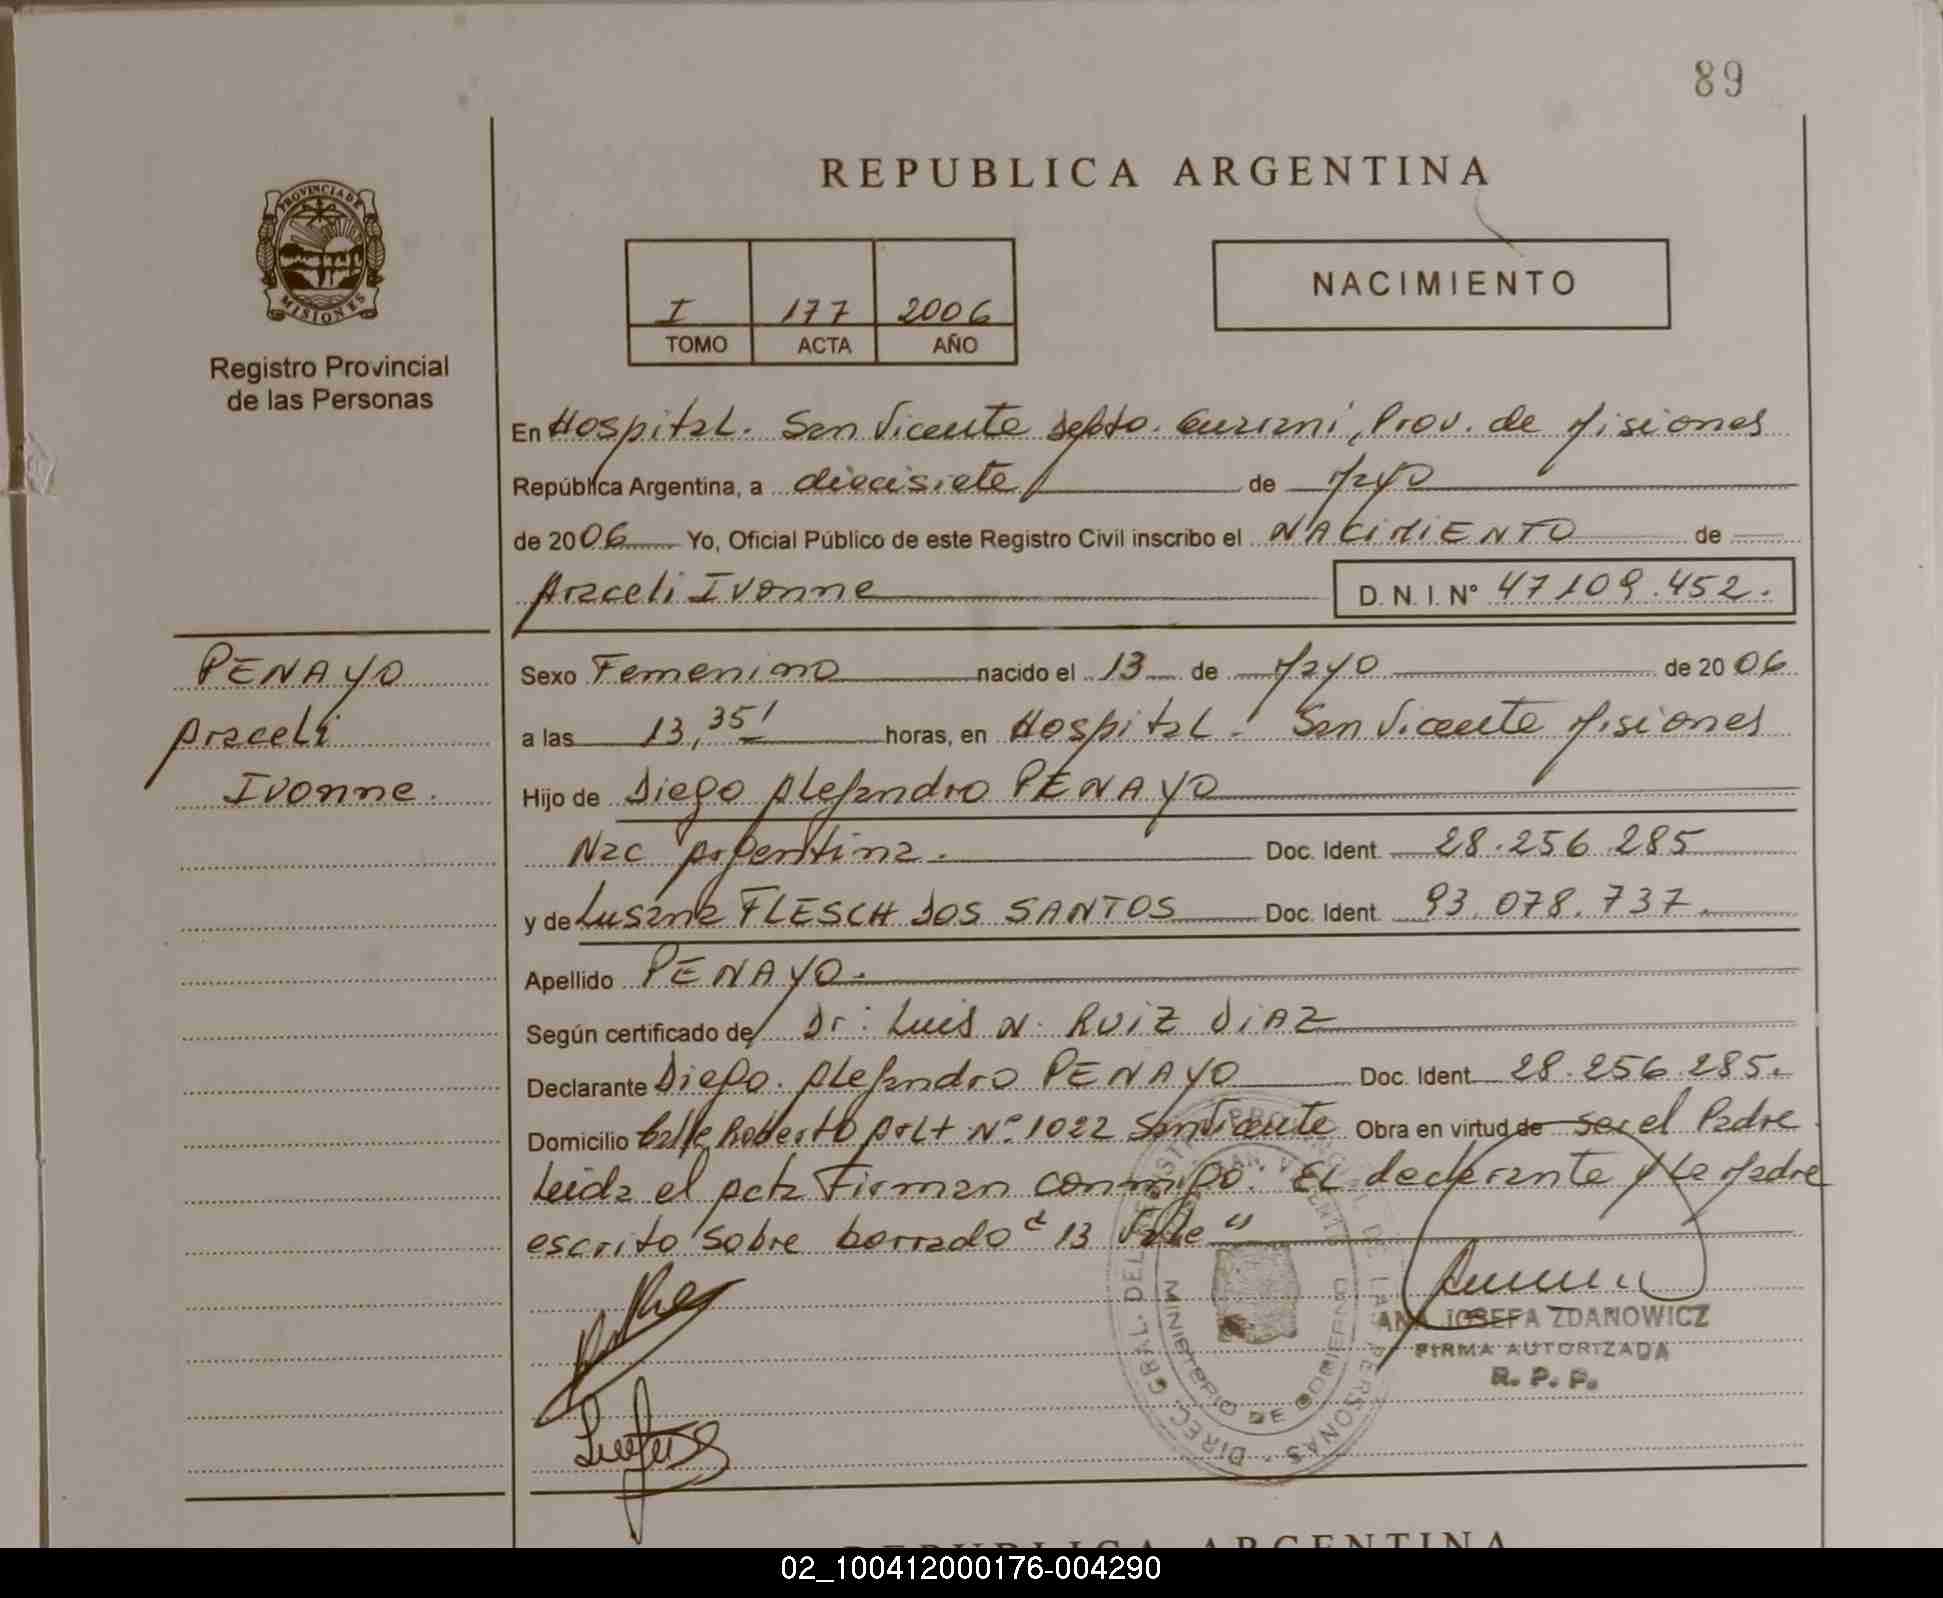 89
REPUBLICA ARGENTINA
PROVINCIA DE
MISIONES
Registro Provincial
de las Personas
I 177 2006
TOMO ACTA AÑO
NACIMIENTO
En Hospital. San Vicente Depto. Guarani, Prov. de Misiones
República Argentina, a diecisiete de Mayo
de 2006 Yo, Oficial Público de este Registro Civil inscribo el NACIMIENTO de
Araceli Ivonne D. N. I. N° 47109.452.
PENAYO
Araceli
Ivonne.
Sexo Femenino nacido el 13 de Mayo de 2006
a las 13,35' horas, en Hospital - San Vicente Misiones
Hijo de Diego Alejandro PENAYO
Nac Argentina. Doc. Ident. 28.256.285
y de Lusana FLESCH DOS SANTOS Doc. Ident. 93.078.737.
Apellido PENAYO.
Según certificado de Dr: Luis N. RUIZ DIAZ
Declarante Diego. Alejandro PENAYO Doc. Ident. 28.256.285.
Domicilio Calle Roberto Arlt N° 1022 San Vicente Obra en virtud de ser el Padre
Leida el acta Firman conmigo. El declarante y La Madre
escrito sobre borrado "13 Vale"
DIREC. GRAL. DEL PERSONAS
MINISTERIO DE GOBIERNO
ANA JOSEFA ZDANOWICZ
FIRMA AUTORIZADA
R. P. P.
REPUBLICA ARGENTINA
02_100412000176-004290